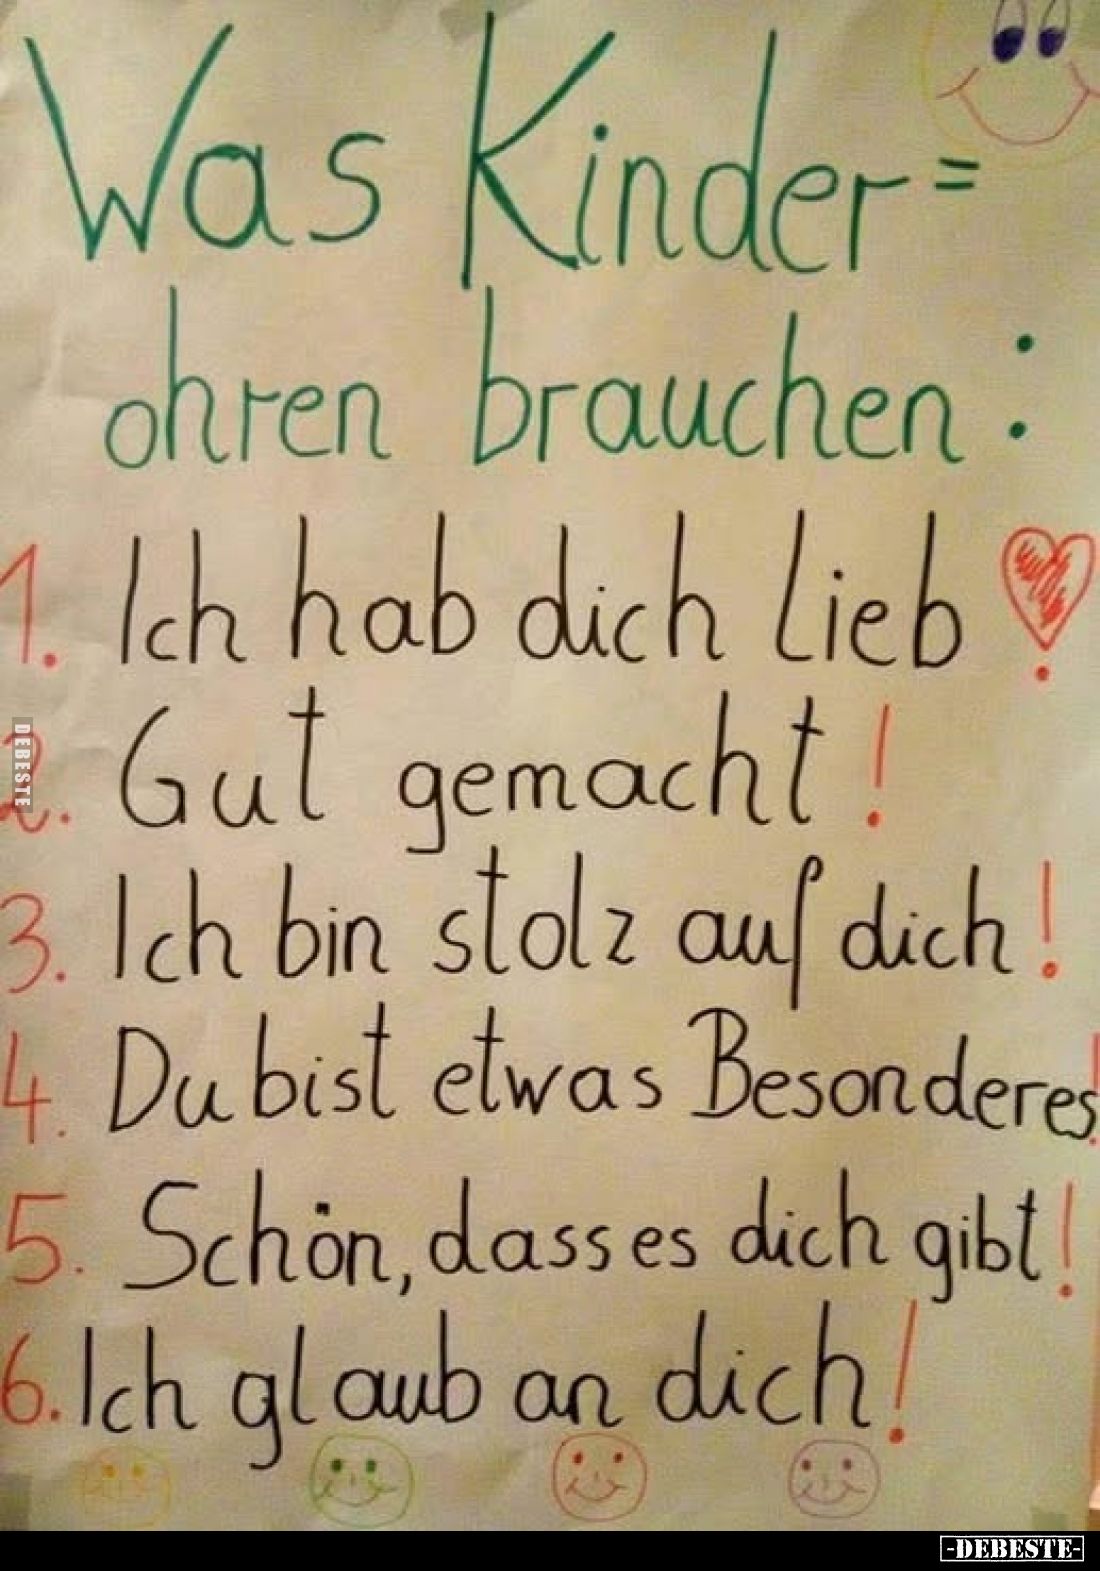 Was Kinder=
ohren brauchen:
1. Ich hab dich lieb
2. Gut gemacht!
3. Ich bin stolz auf dich!
4. Du bist etwas Besonderes!
5. Schön, dass es dich gibt!
6. Ich glaub an dich!
DEBESTE
-DEBESTE-